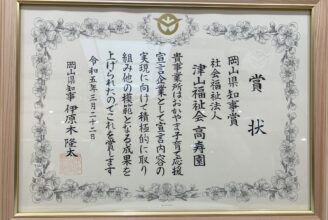 賞状
岡山県知事賞
社会福祉法人
津山福祉会 高寿園
貴事業所はおかやま子育て応援
宣言企業として宣言内容の
実現に向けて積極的に取り
組み他の模範となる成果を
上げられたのでこれを賞します
令和五年三月二十二日
岡山県知事 伊原木隆太